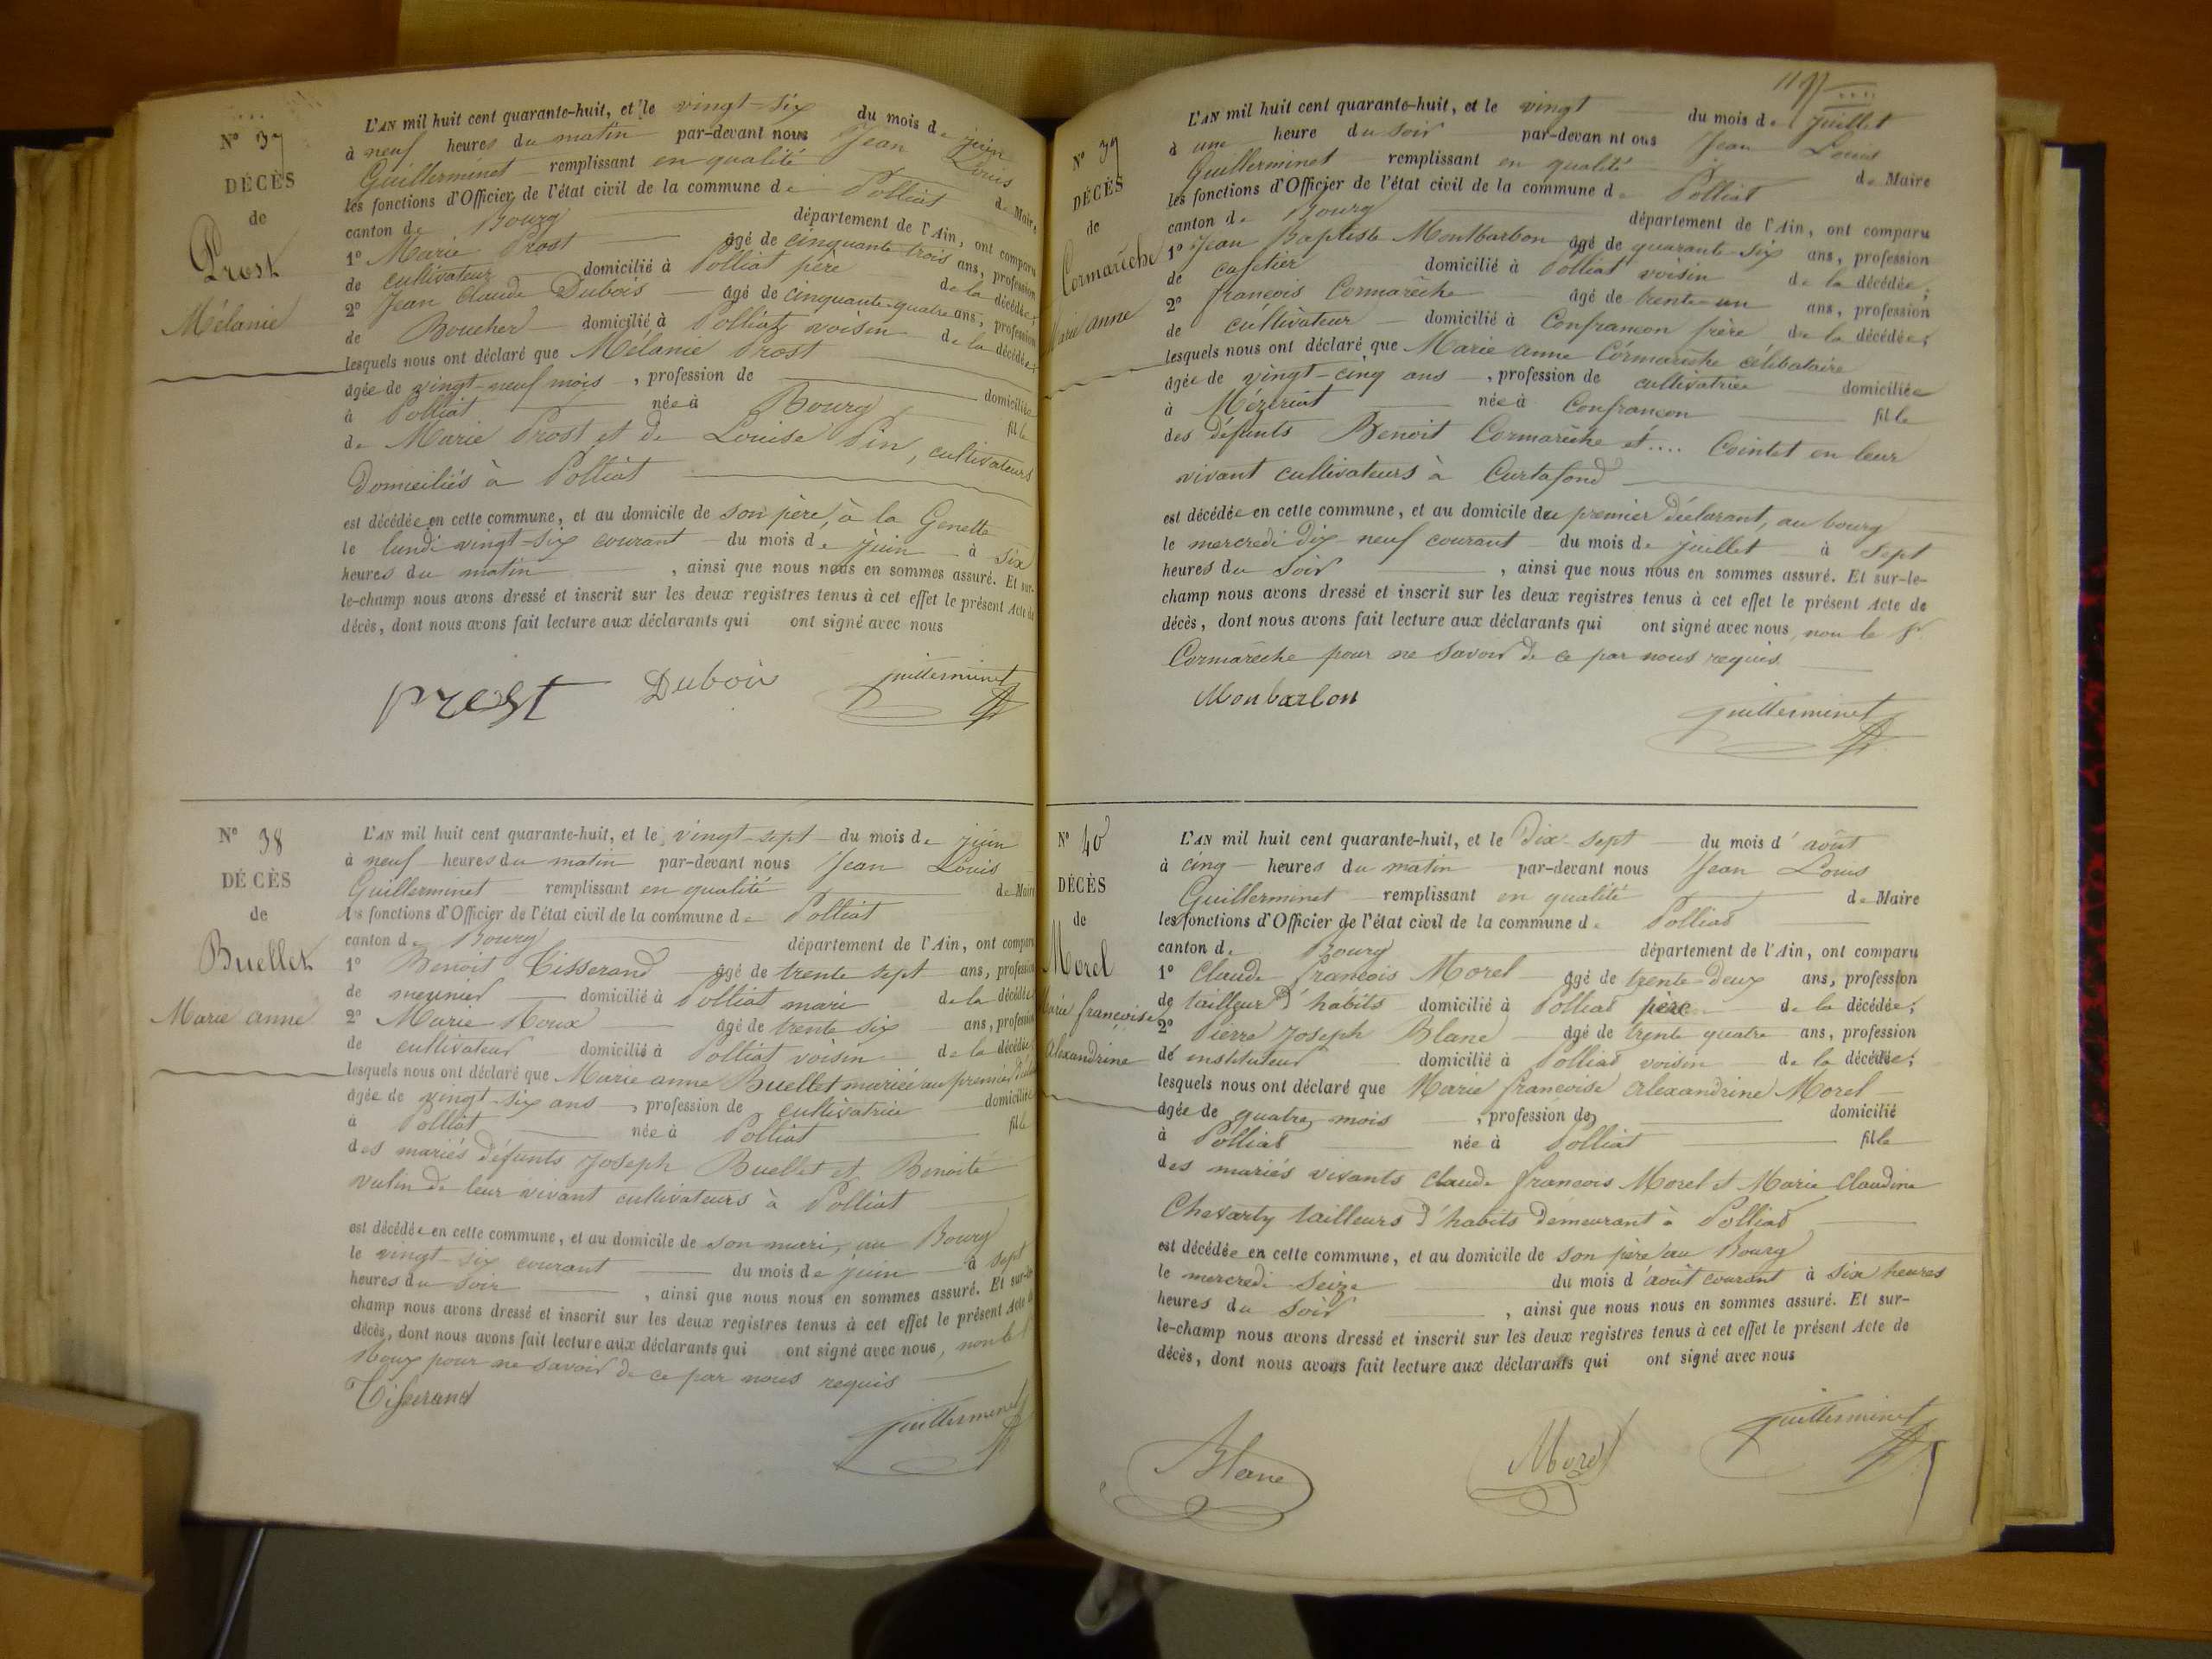 N° 37
DÉCÈS
de
Prost
Mélanie
L'AN mil huit cent quarante-huit, et le vingt-six du mois de juin
à neuf heures du matin par-devant nous Jean Louis
Guillerminet remplissant en qualité de Maire
les fonctions d'Officier de l'état civil de la commune de Polliat
canton de Bourg département de l'Ain, ont comparu
1° Marie Prost âgé de cinquante trois ans, profession
de cultivateur domicilié à Polliat père de la décédée;
2° Jean Claude Dubois âgé de cinquante-quatre ans, profession
de Boucher domicilié à Polliat voisin de la décédée;
lesquels nous ont déclaré que Mélanie Prost
âgée de vingt-neuf mois, profession de domiciliée
à Polliat née à Bourg fille
de Marie Prost et de Louise Pin, cultivateurs
domiciliés à Polliat
est décédée en cette commune, et au domicile de son père, à la Genette
le lundi vingt-six courant du mois de juin à six
heures du matin, ainsi que nous nous en sommes assuré. Et sur-
le-champ nous avons dressé et inscrit sur les deux registres tenus à cet effet le présent Acte de
décès, dont nous avons fait lecture aux déclarants qui ont signé avec nous
prost Dubois guillerminet
N° 38
DÉCÈS
de
Buellet
Marie anne
L'AN mil huit cent quarante-huit, et le vingt-sept du mois de juin
à neuf heures du matin par-devant nous Jean Louis
Guillerminet remplissant en qualité de Maire
les fonctions d'Officier de l'état civil de la commune de Polliat
canton de Bourg département de l'Ain, ont comparu
1° Benoit Tisserand âgé de trente sept ans, profession
de meunier domicilié à Polliat mari de la décédée
2° Marie Roux âgé de trente six ans, profession
de cultivateur domicilié à Polliat voisin de la décédée
lesquels nous ont déclaré que Marie anne Buellet mariée au premier
âgée de vingt-six ans, profession de cultivatrice domiciliée
à Polliat née à Polliat fille
des mariés défunts Joseph Buellet et Benoite
vulin de leur vivant cultivateurs à Polliat
est décédée en cette commune, et au domicile de son mari, au Bourg
le vingt-six courant du mois de juin à sept
heures du soir, ainsi que nous nous en sommes assuré. Et sur-le-
champ nous avons dressé et inscrit sur les deux registres tenus à cet effet le présent Acte de
décès, dont nous avons fait lecture aux déclarants qui ont signé avec nous, non le
Roux pour ne savoir de ce par nous requis
Tisserand guillerminet
119
N° 39
DÉCÈS
de
Cormarèche
Marie anne
L'AN mil huit cent quarante-huit, et le vingt du mois de juillet
à une heure du soir par-devan nt ous Jean Louis
Guillerminet remplissant en qualité de Maire
les fonctions d'Officier de l'état civil de la commune de Polliat
canton de Bourg département de l'Ain, ont comparu
1° Jean Baptiste Montbarbon âgé de quarante-six ans, profession
de cafetier domicilié à Polliat voisin de la décédée;
2° françois Cormarèche âgé de trente-un ans, profession
de cultivateur domicilié à Confrançon frère de la décédée;
lesquels nous ont déclaré que Marie anne Cormarèche célibataire
âgée de vingt-cinq ans, profession de cultivatrice domiciliée
à Mézériat née à Confrançon fille
des défunts Benoit Cormarèche et .... Cointet en leur
vivant cultivateurs à Curtafond
est décédée en cette commune, et au domicile du premier déclarant, au bourg
le mercredi dix-neuf courant du mois de juillet à sept
heures du soir, ainsi que nous nous en sommes assuré. Et sur-le-
champ nous avons dressé et inscrit sur les deux registres tenus à cet effet le présent Acte de
décès, dont nous avons fait lecture aux déclarants qui ont signé avec nous, non le
Cormarèche pour ne savoir de ce par nous requis
Monbarbon guillerminet
N° 40
DÉCÈS
de
Morel
Marie françoise
alexandrine
L'AN mil huit cent quarante-huit, et le Dix-sept du mois d'août
à cinq heures du matin par-devant nous Jean Louis
Guillerminet remplissant en qualité de Maire
les fonctions d'Officier de l'état civil de la commune de Polliat
canton de Bourg département de l'Ain, ont comparu
1° Claude françois Morel âgé de trente-deux ans, profession
de tailleur d'habits domicilié à Polliat père de la décédée;
2° Pierre Joseph Blanc âgé de trente quatre ans, profession
de instituteur domicilié à Polliat voisin de la décédée;
lesquels nous ont déclaré que Marie françoise alexandrine Morel
âgée de quatre mois, profession de domicilié
à Polliat née à Polliat fille
des mariés vivants Claude françois Morel et Marie Claudine
Chevarty tailleurs d'habits demeurant à Polliat
est décédée en cette commune, et au domicile de son père au Bourg
le mercredi seize du mois d'août courant à six heures
heures du soir, ainsi que nous nous en sommes assuré. Et sur-
le-champ nous avons dressé et inscrit sur les deux registres tenus à cet effet le présent Acte de
décès, dont nous avons fait lecture aux déclarants qui ont signé avec nous
Blanc Morel guillerminet